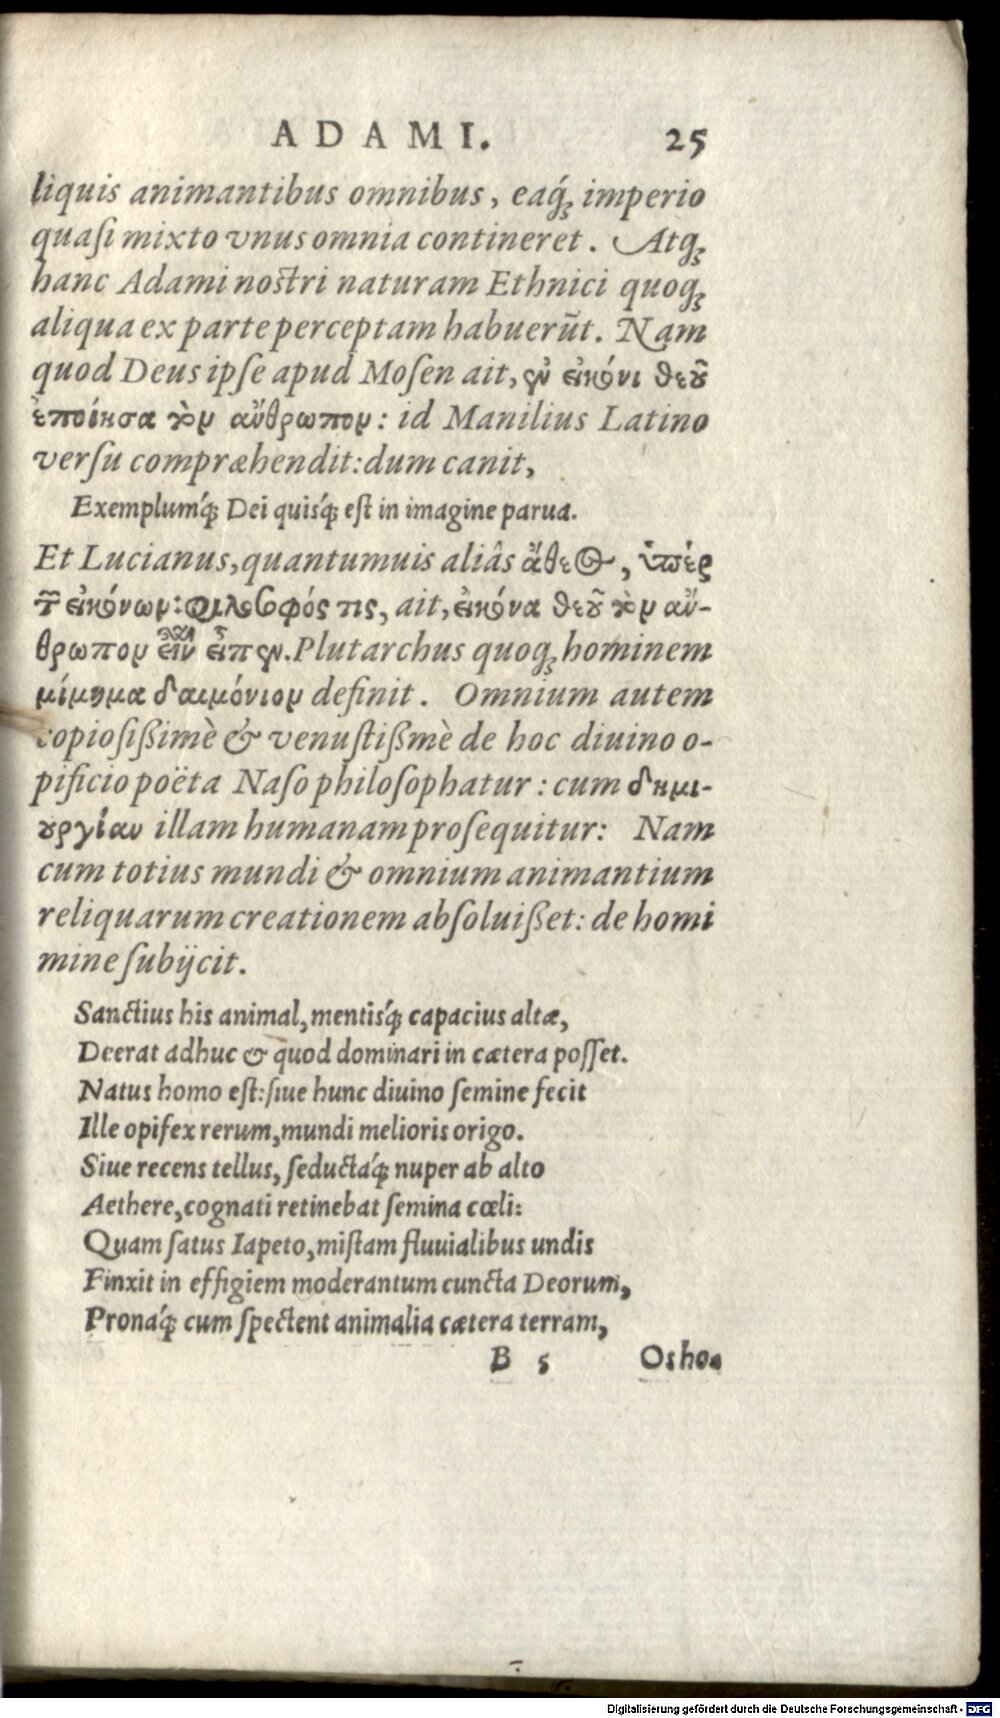 ADAMI. 25
liquis animantibus omnibus, eaq́; imperio
quaſi mixto vnus omnia contineret. Atq;
hanc Adami noſtri naturam Ethnici quoq;
aliqua ex parte perceptam habuerūt. Nam
quod Deus ipſe apud Moſen ait, ἐν εἰκόνι θεοῦ
ἐποίησα τὸν ἄνθρωπον: id Manilius Latino
verſu compræhendit: dum canit,
Exemplumq́; Dei quiſq́; eſt in imagine parua.
Et Lucianus, quantumuis aliâs ἄθεος, ὑπὲρ
τῶν εἰκόνων: φιλοσοφός τις, ait, εἰκόνα θεοῦ τὸν ἄν-
θρωπον εἶπεν. Plutarchus quoq; hominem
μίμημα δαιμόνιον definit. Omnium autem
copioſißimè & venuſtißmè de hoc diuino o-
pificio poëta Naſo philoſophatur: cum δημι-
ουργίαν illam humanam proſequitur: Nam
cum totius mundi & omnium animantium
reliquarum creationem abſoluißet: de homi
mine ſubijcit.
Sanctius his animal, mentiſq́; capacius altæ,
Deerat adhuc & quod dominari in cætera poſſet.
Natus homo eſt: ſiue hunc diuino ſemine fecit
Ille opifex rerum, mundi melioris origo.
Siue recens tellus, ſeductaq́; nuper ab alto
Aethere, cognati retinebat ſemina cœli:
Quam ſatus Iapeto, miſtam fluuialibus undis
Finxit in effigiem moderantum cuncta Deorum,
Pronaq́; cum ſpectent animalia cætera terram,
B 5 Os ho-
Digitalisierung gefördert durch die Deutsche Forschungsgemeinschaft - DFG